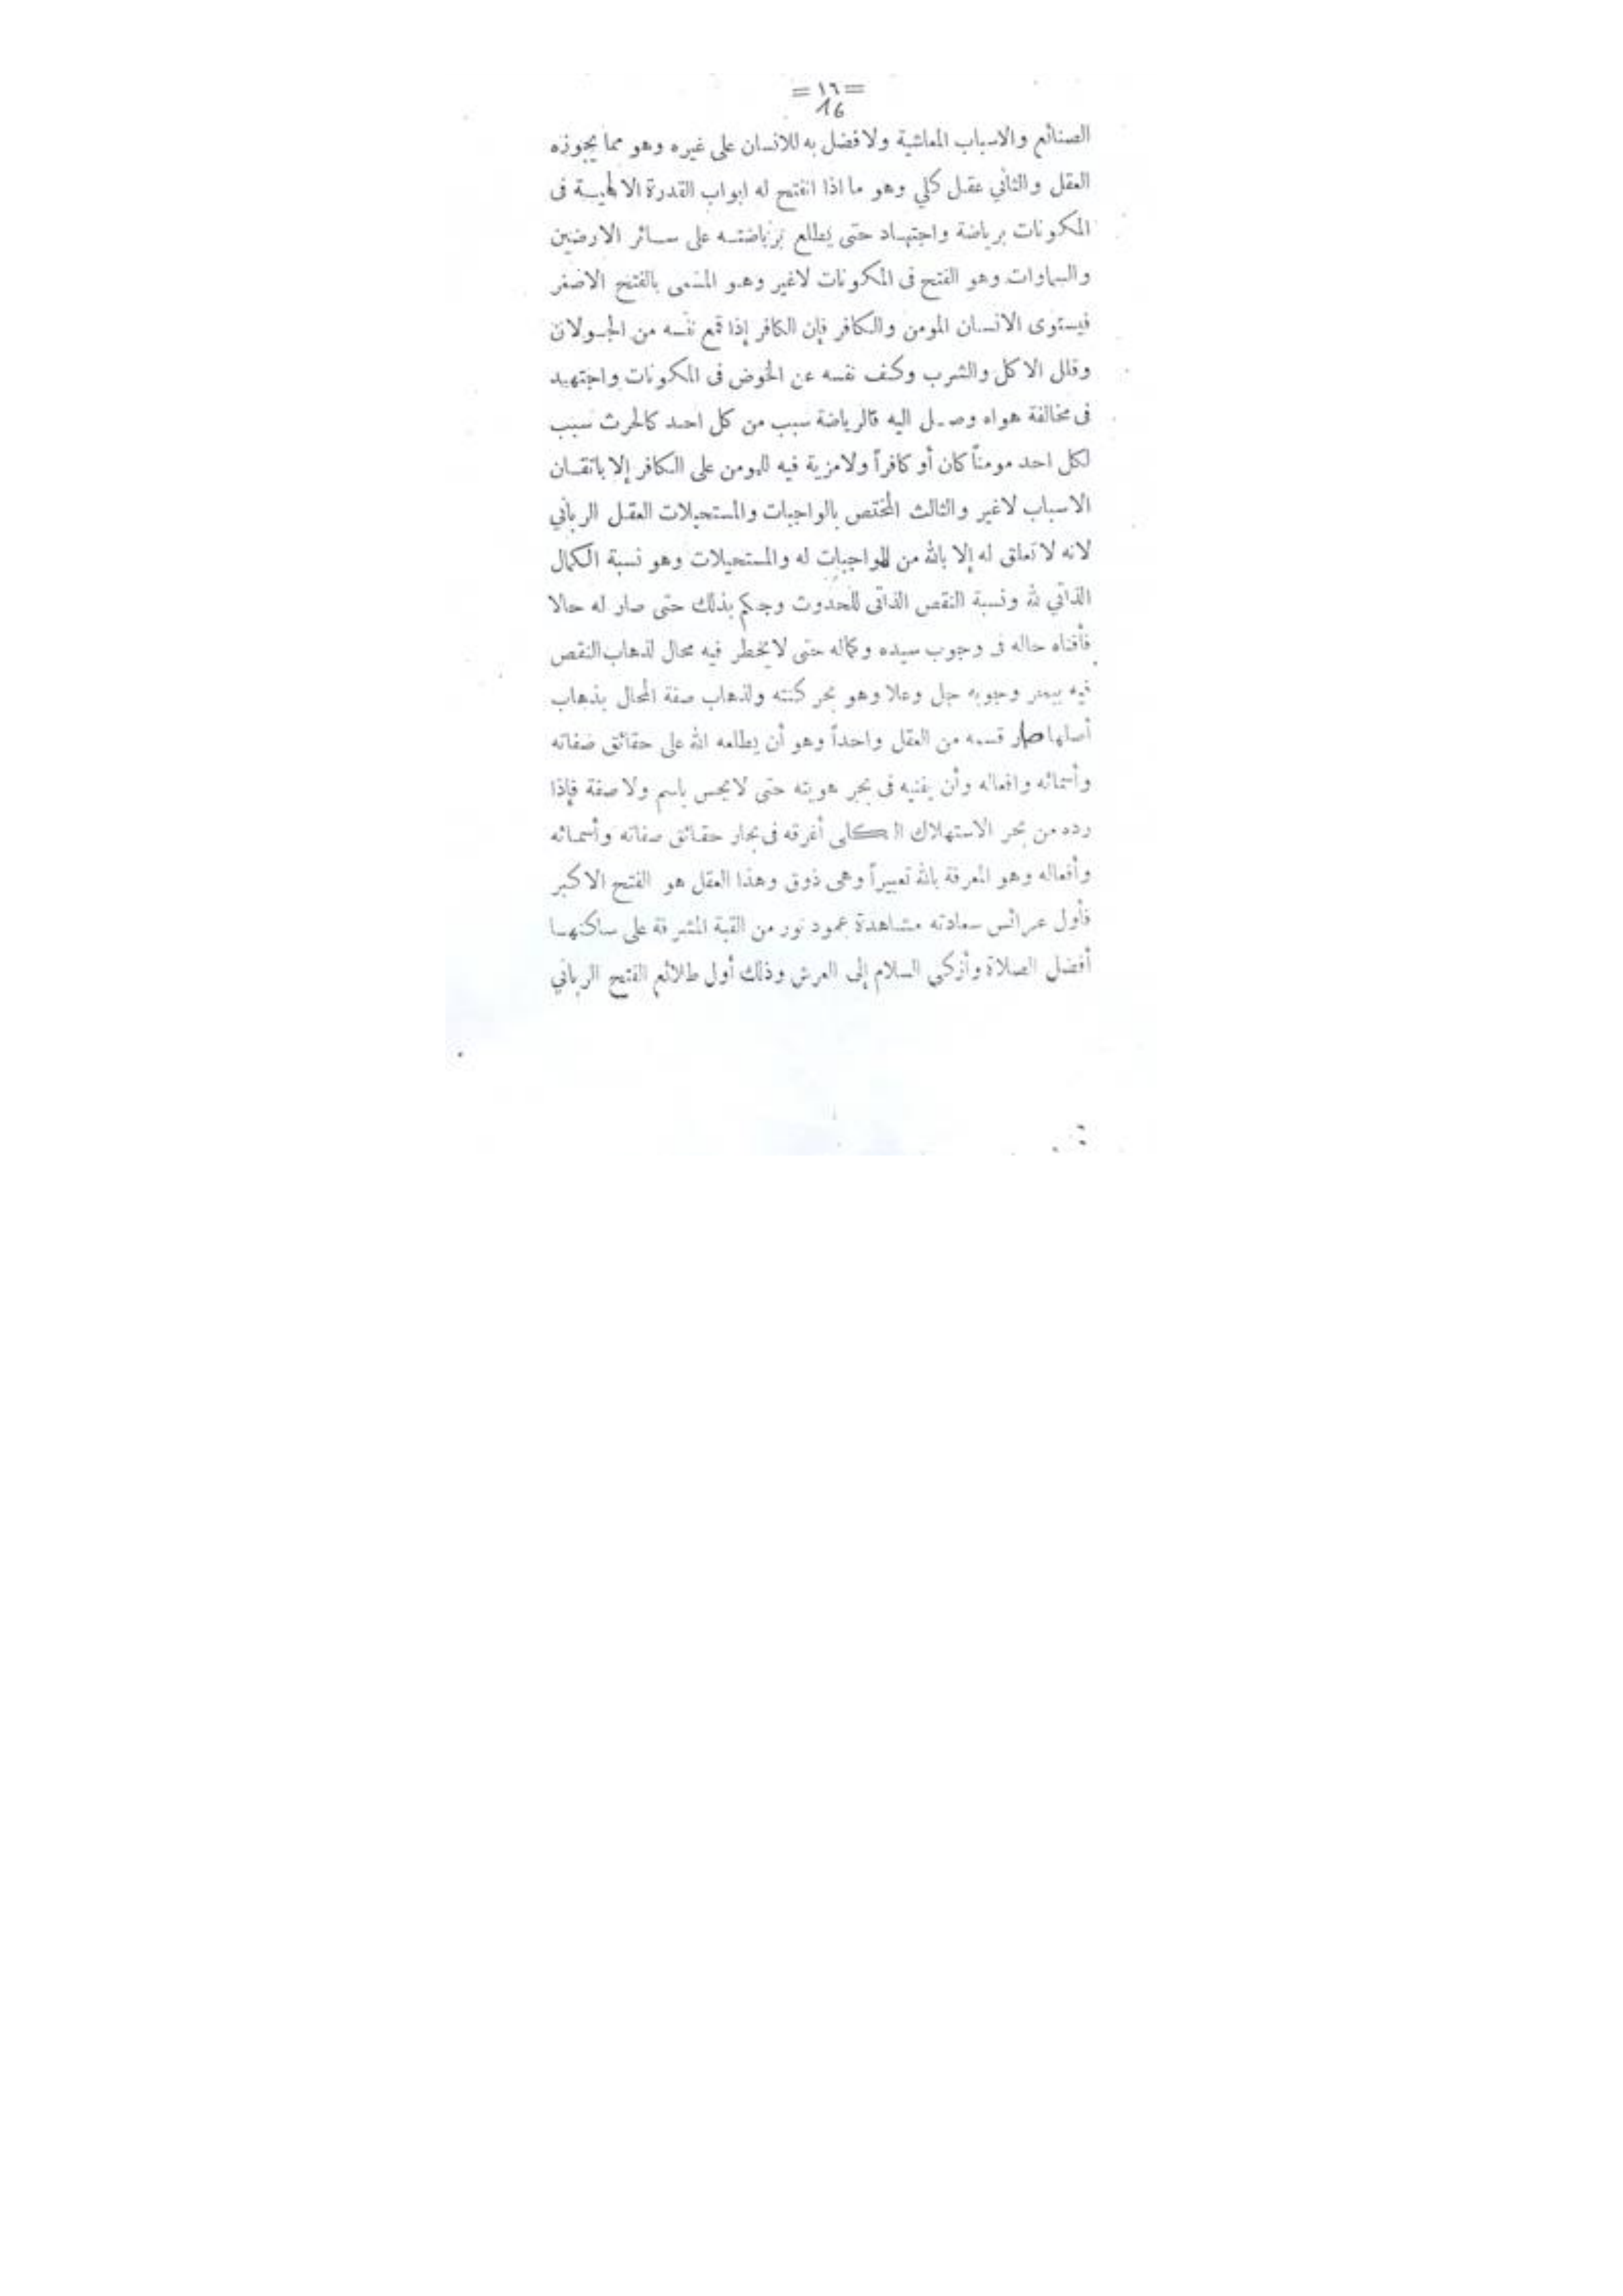 = ١٦ =
16
الصنائع والاسباب المعاشية ولا فضل به للانسان على غيره وهو مما يجوزه
العقل والثاني عقل كلي وهو ما اذا انفتح له ابواب القدرة الالهية فى
المكونات برياضة واجتهاد حتى يطلع برياضته على سائر الارضين
والسماوات وهو الفتح فى المكونات لاغير وهو المسمى بالفتح الاصغر
فيستوى الانسان المومن والكافر فإن الكافر إذا قمع نفسه من الجولان
وقلل الاكل والشرب وكف نفسه عن الخوض فى المكونات واجتهد
فى مخالفة هواه وصل اليه فالرياضة سبب من كل احد كالحرث سبب
لكل احد مومناً كان أو كافراً ولامزية فيه للمومن على الكافر إلا باتقان
الاسباب لاغير والثالث المختص بالواجبات والمستحيلات العقل الرباني
لانه لا تعلق له إلا بالله من الواجبات له والمستحيلات وهو نسبة الكمال
الذاتي لله ونسبة النقص الذاتى للحدوث وحكم بذلك حتى صار له حالا
فأفناه حاله فى وجوب سيده وكماله حتى لايخطر فيه محال لذهاب النقص
فيه ببحر وجوبه جل وعلا وهو بحر كنته ولذهاب صفة المحال بذهاب
أصلها صار قسمه من العقل واحداً وهو أن يطلعه الله على حقائق صفاته
وأسمائه وافعاله وأن يفنيه فى بحر هويته حتى لايحس باسم ولا صفة فإذا
رده من بحر الاستهلاك الكلى أغرقه فى بحار حقائق صفاته وأسمائه
وأفعاله وهو المعرفة بالله تعبيراً وهى ذوق وهذا العقل هو الفتح الاكبر
فأول عرائس سعادته مشاهدة عمود نور من القبة المشرفة على ساكنها
أفضل الصلاة وأزكى السلام إلى العرش وذلك أول طلائع الفتح الرباني